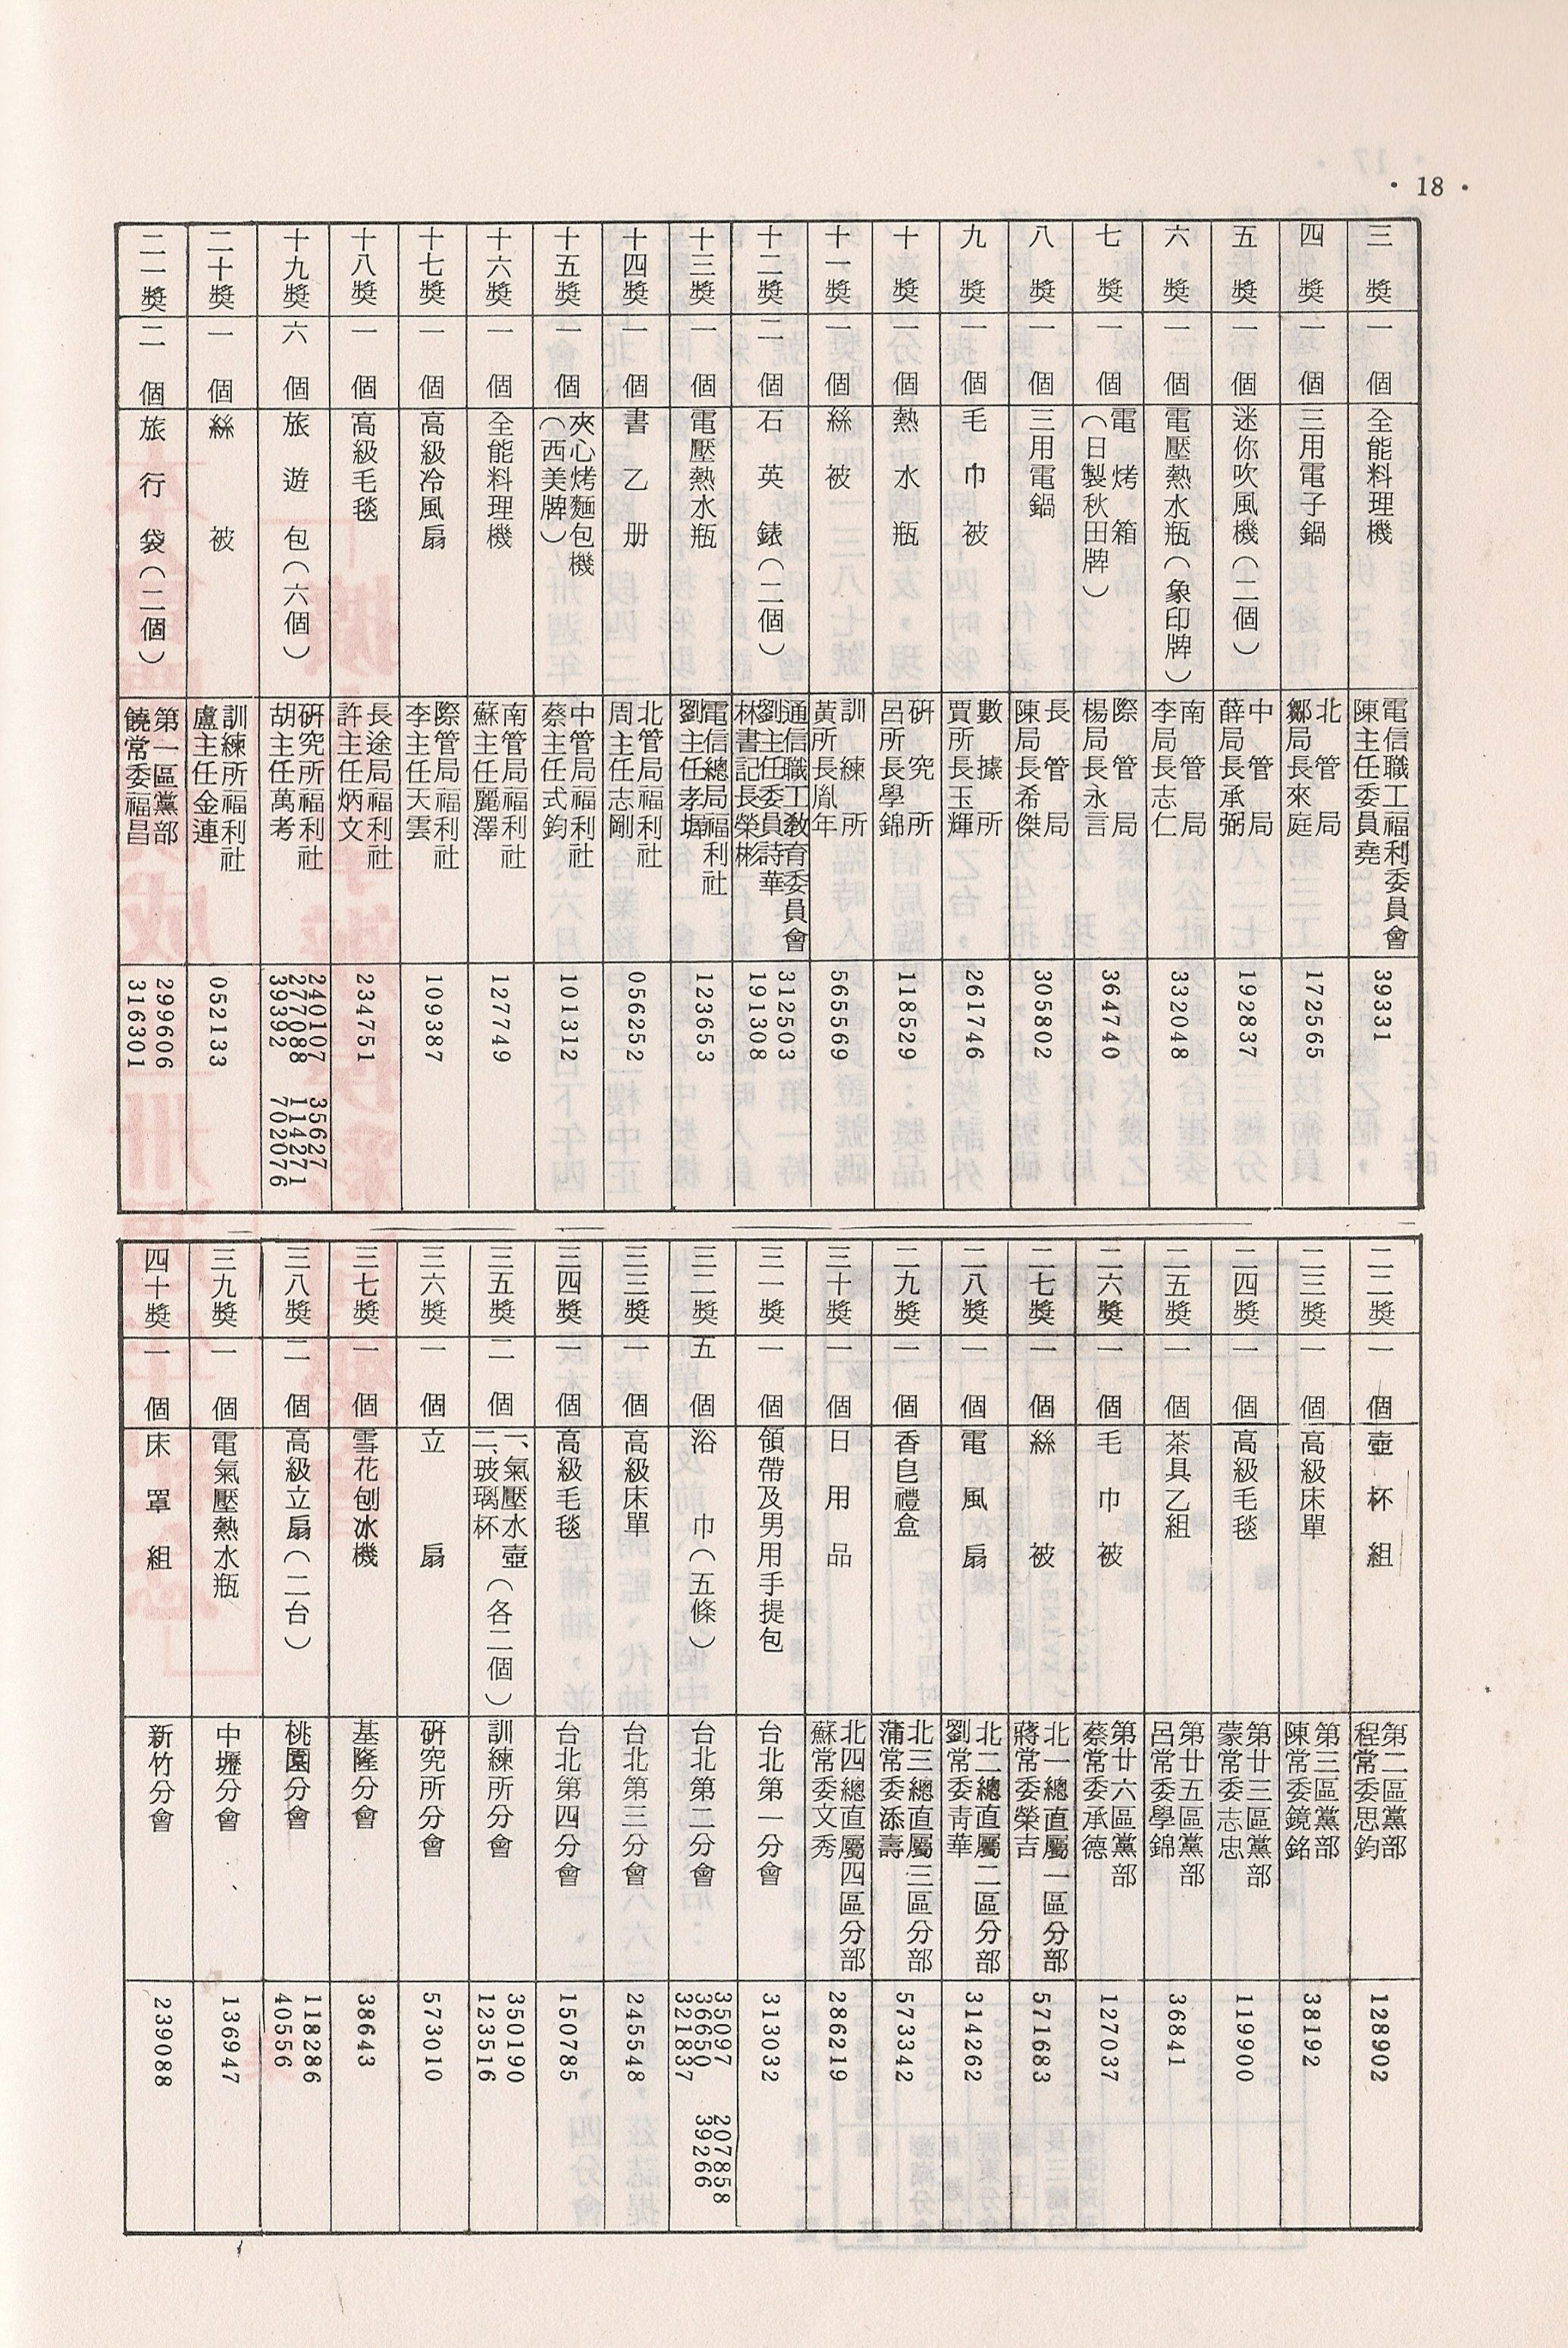 • 18 •
三獎 一個 全能料理機 電信職工福利委員會 陳主任委員堯 39331
四獎 一個 三用電子鍋 北管局 鄒局長來庭 172565
五獎 一個 迷你吹風機（二個） 中管局 薛局長承弼 192837
六獎 一個 電壓熱水瓶（象印牌） 南管局 李局長志仁 332048
七獎 一個 電烤箱（日製秋田牌） 際管局 楊局長永言 364740
八獎 一個 三用電鍋 長管局 陳局長希傑 305802
九獎 一個 毛巾被 數據所 賈所長玉輝 261746
十獎 一個 熱水瓶 研究所 呂所長學錦 118529
十一獎 一個 絲被 訓練所 黃所長胤年 565569
十二獎 二個 石英錶（二個） 通信職工教育委員會 劉主任委員詩華 林書記長榮彬 312503 191308
十三獎 一個 電壓熱水瓶 電信總局福利社 劉主任孝墀 123653
十四獎 一個 書乙册 北管局福利社 周主任志剛 056252
十五獎 一個 夾心烤麵包機（西美牌） 中管局福利社 蔡主任式鈞 101312
十六獎 一個 全能料理機 南管局福利社 蘇主任麗澤 127749
十七獎 一個 高級冷風扇 際管局福利社 李主任天雲 109387
十八獎 一個 高級毛毯 長途局福利社 許主任炳文 234751
十九獎 六個 旅遊包（六個） 研究所福利社 胡主任萬考 240107 277088 39392 35627 114271 702076
二十獎 一個 絲被 訓練所福利社 盧主任金連 052133
二一獎 二個 旅行袋（二個） 第一區黨部 饒常委福昌 299606 316301
二二獎 一個 壺杯組 第二區黨部 程常委思鈞 128902
二三獎 一個 高級床單 第三區黨部 陳常委鏡銘 38192
二四獎 一個 高級毛毯 第廿三區黨部 蒙常委志忠 119900
二五獎 一個 茶具乙組 第廿五區黨部 呂常委學錦 36841
二六獎 一個 毛巾被 第廿六區黨部 蔡常委承德 127037
二七獎 一個 絲被 北一總直屬一區分部 蔣常委榮吉 571683
二八獎 一個 電風扇 北二總直屬二區分部 劉常委靑華 314262
二九獎 一個 香皂禮盒 北三總直屬三區分部 蒲常委添壽 573342
三十獎 一個 日用品 北四總直屬四區分部 蘇常委文秀 286219
三一獎 一個 領帶及男用手提包 台北第一分會 313032
三二獎 五個 浴巾（五條） 台北第二分會 35097 36650 321837 207858 39266
三三獎 一個 高級床單 台北第三分會 245548
三四獎 一個 高級毛毯 台北第四分會 150785
三五獎 二個 一、氣壓水壺 二、玻璃杯（各二個） 訓練所分會 350190 123516
三六獎 一個 立扇 研究所分會 573010
三七獎 一個 雪花刨冰機 基隆分會 38643
三八獎 二個 高級立扇（二台） 桃園分會 118286 40556
三九獎 一個 電氣壓熱水瓶 中壢分會 136947
四十獎 一個 床罩組 新竹分會 239088